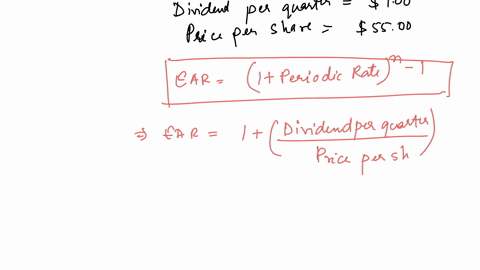 Dividend per quarter = $1.00
Price per share = $55.00
EAR = (1 + Periodic Rate)^n - 1
⇒ EAR = 1 + (Dividend per quarter / Price per sh)